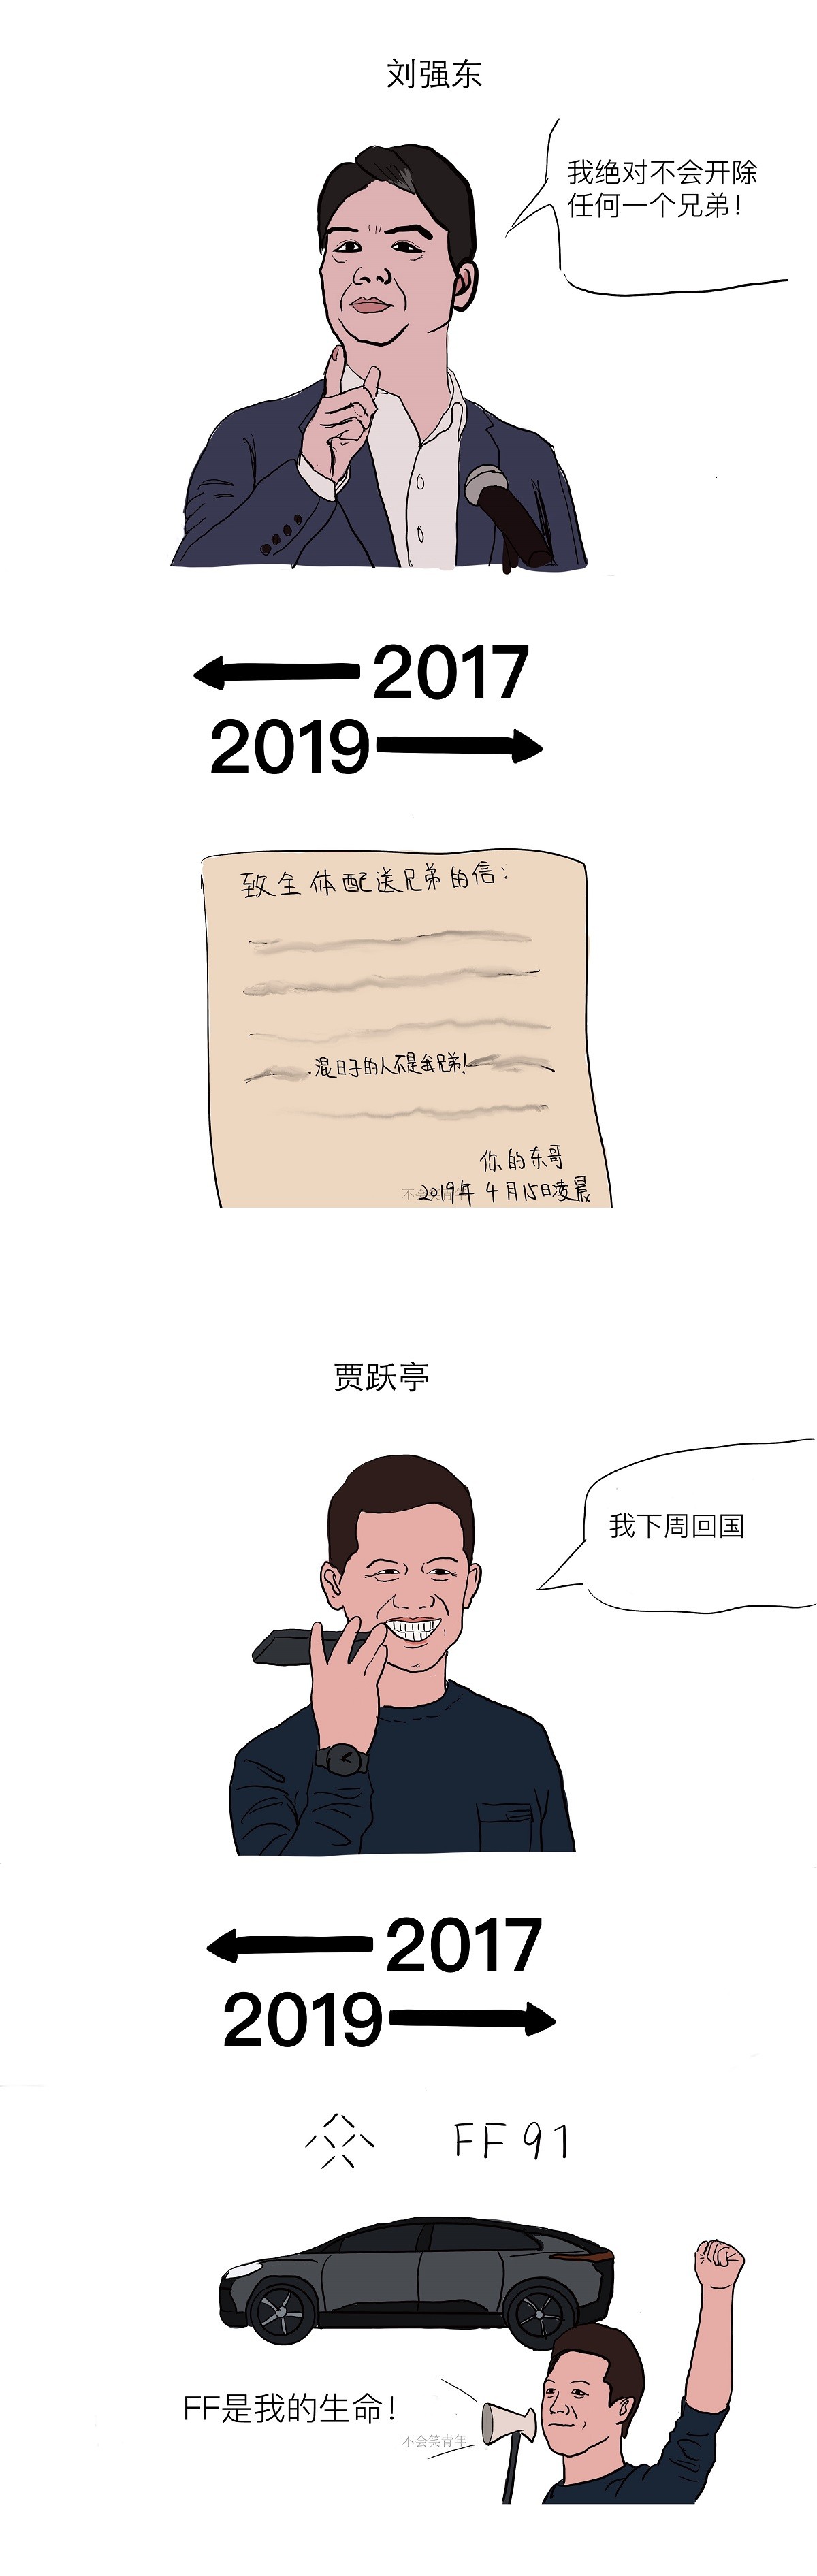 刘强东
我绝对不会开除
任何一个兄弟！
2017
2019
致全体配送兄弟的信：
混日子的人不是我兄弟！
你的东哥
2019年4月15日凌晨
不会笑青年
贾跃亭
我下周回国
2017
2019
FF 91
FF是我的生命！
不会笑青年